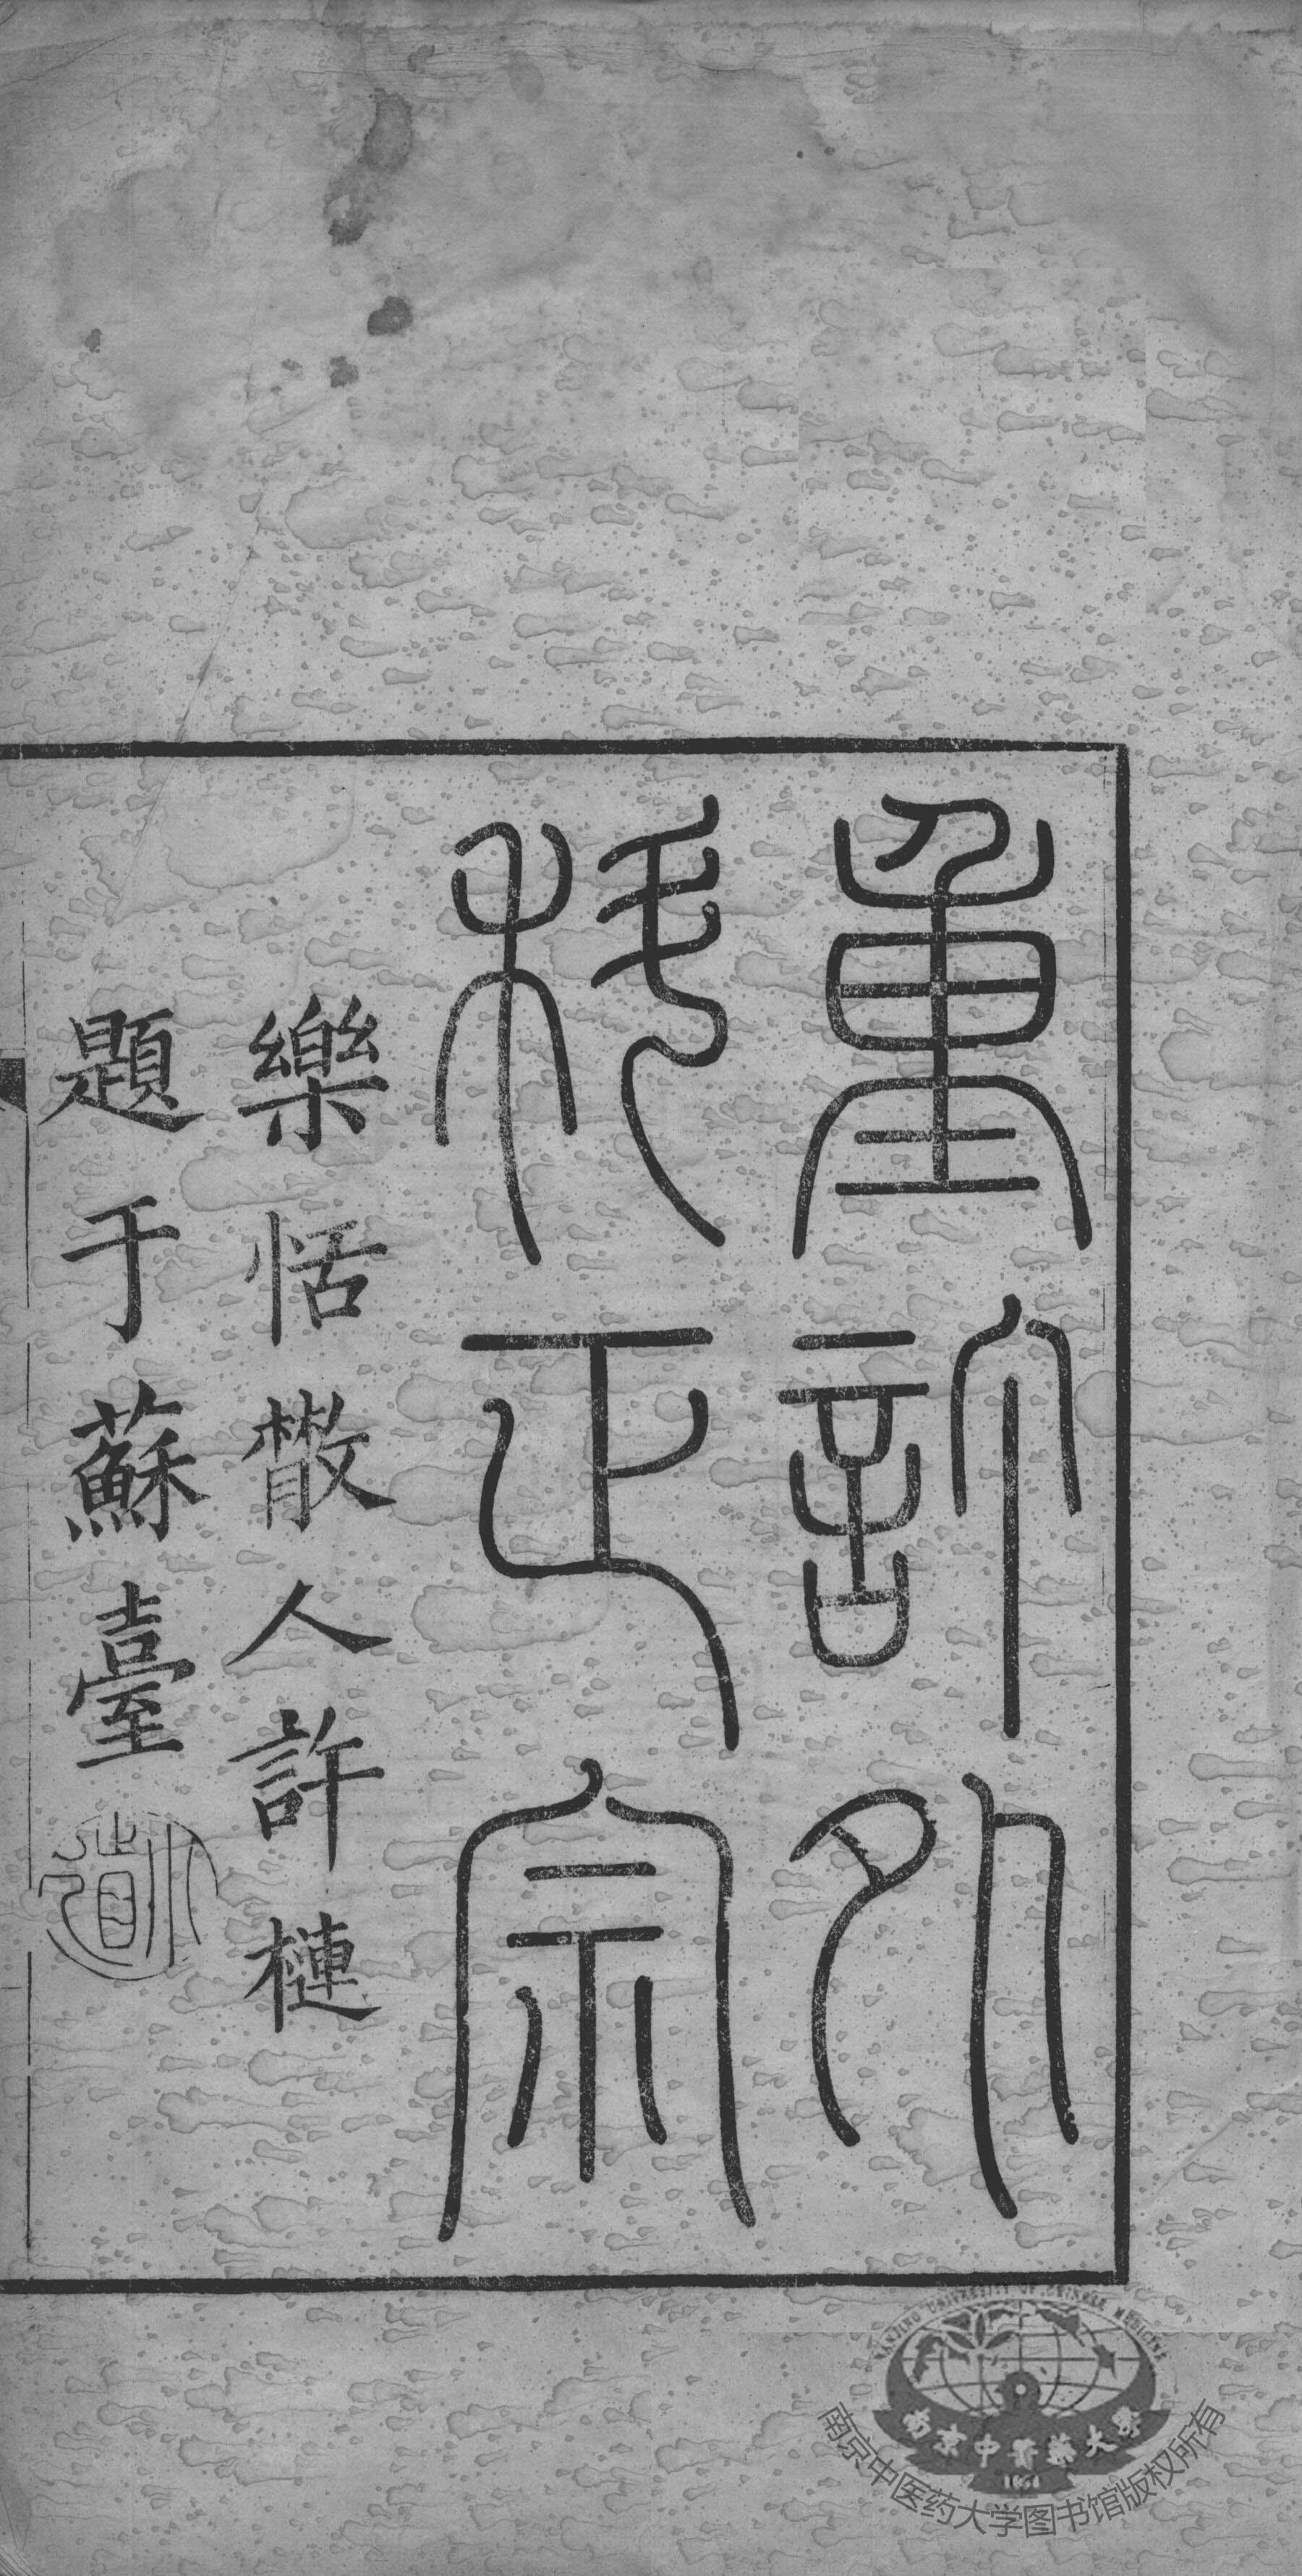 重訂外
科正宗
樂恬散人許槤
題于蘇臺
NANJING UNIVERSITY OF CHINESE MEDICINE
南京中醫藥大學
1954
南京中医药大学图书馆版权所有